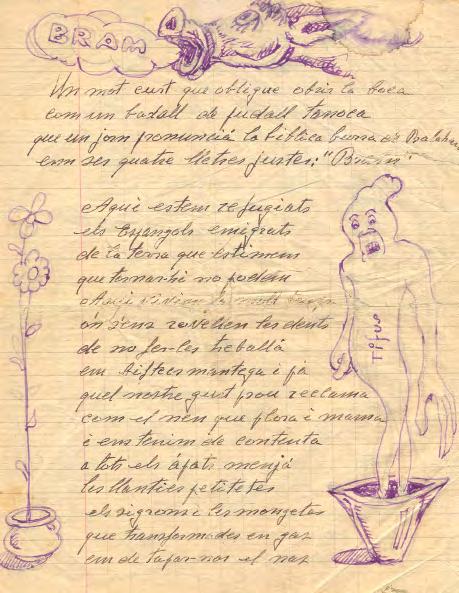 BRAM
Un mot curt que obligue obrir la boca
com un badall de judall tanoca
que un jorn pronunciá la biblica burra de Balaham
em ses quatre lletres justes; "Bram"
Aquí estem refugiats
els Espanyols emigrats
de la terra que estimem
que tornar-hi no podem
Aquí vivim
ón sens rovellen les dents
de no fer-les treballá
em mantega i pá
quel nostre gust prou reclama
com el nen que plora i mama
i ens tenim de contenta
a tots els ápats menjá
les llanties petitetes
els sigrons i les mongetes
que transformades en gas
em de tapar-nos el nas
Tifus